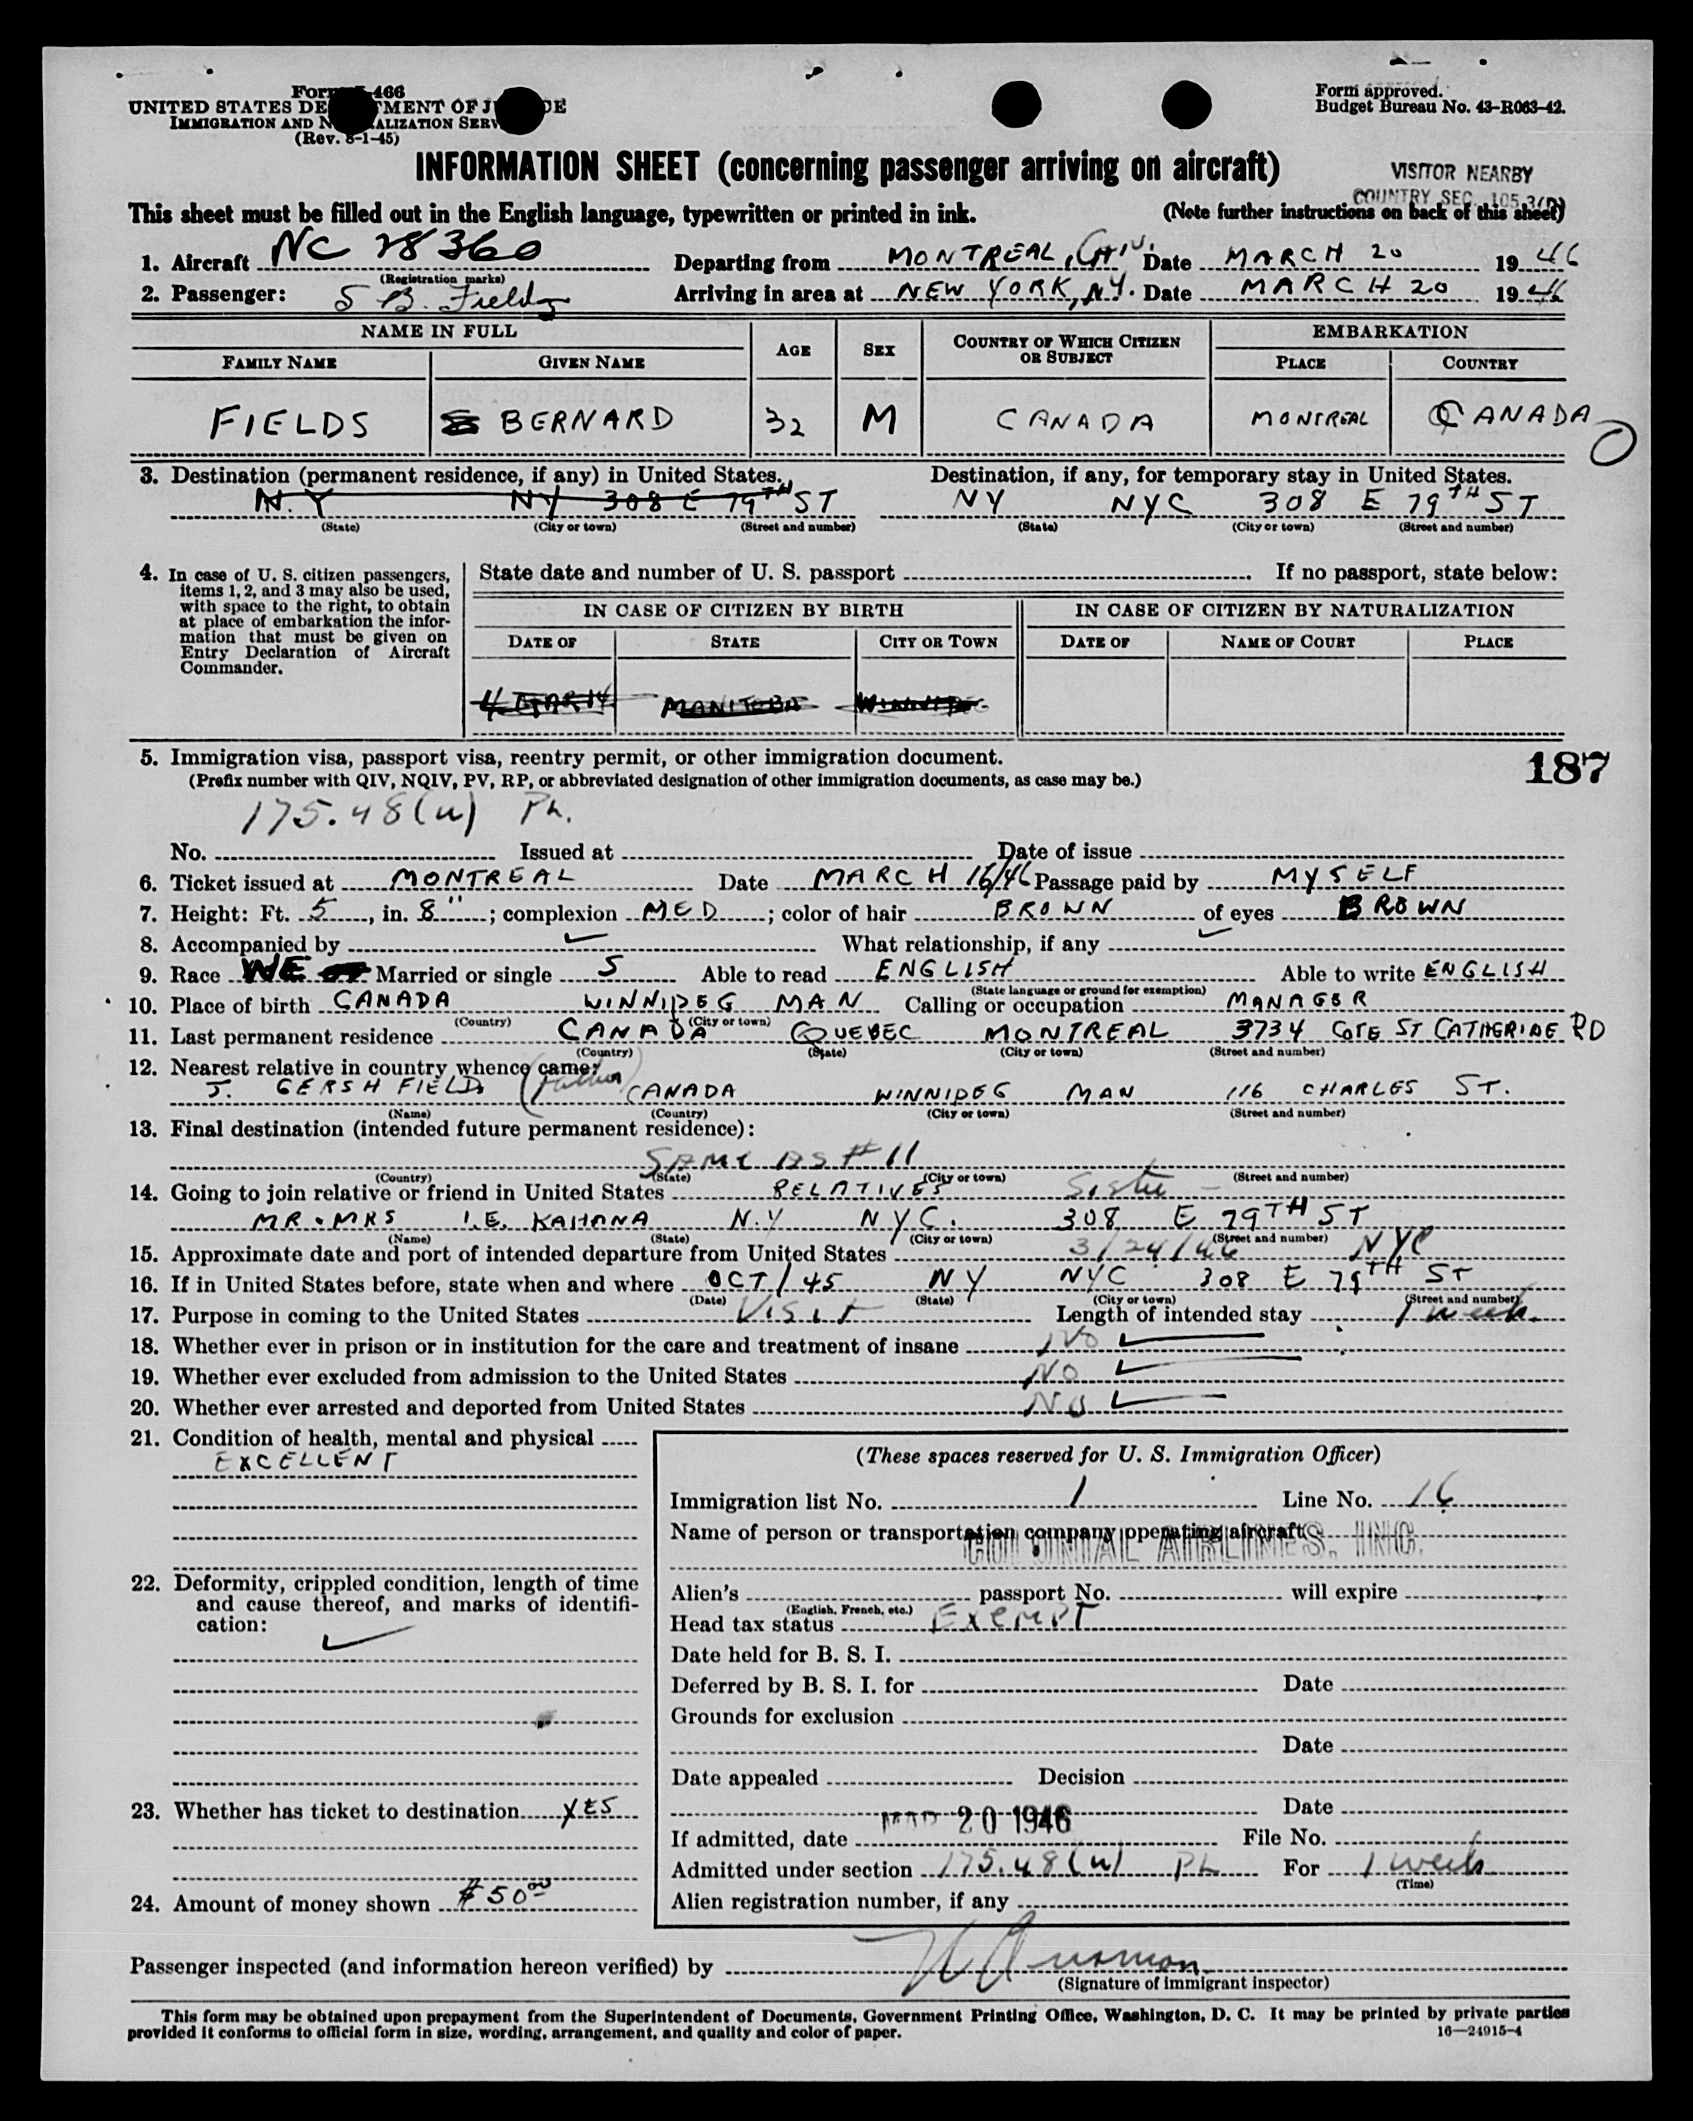 Form I-466
UNITED STATES DEPARTMENT OF JUSTICE
IMMIGRATION AND NATURALIZATION SERVICE
(Rev. 8-1-45)
Form approved.
Budget Bureau No. 43-R063-42.
INFORMATION SHEET (concerning passenger arriving on aircraft)
VISITOR NEARBY
COUNTRY SEC. 105.3(D)
This sheet must be filled out in the English language, typewritten or printed in ink. (Note further instructions on back of this sheet)
1. Aircraft NC 28360 Departing from MONTREAL, CAN. Date MARCH 20 1946
(Registration marks)
2. Passenger: S B. Fields Arriving in area at NEW YORK, N.Y. Date MARCH 20 1946
NAME IN FULL EMBARKATION
FAMILY NAME GIVEN NAME AGE SEX COUNTRY OF WHICH CITIZEN OR SUBJECT PLACE COUNTRY
FIELDS S BERNARD 32 M CANADA MONTREAL CANADA
3. Destination (permanent residence, if any) in United States. Destination, if any, for temporary stay in United States.
N.Y NY 308 E 79TH ST NY NYC 308 E 79TH ST
(State) (City or town) (Street and number) (State) (City or town) (Street and number)
4. In case of U. S. citizen passengers, items 1, 2, and 3 may also be used, with space to the right, to obtain at place of embarkation the information that must be given on Entry Declaration of Aircraft Commander.
State date and number of U. S. passport If no passport, state below:
IN CASE OF CITIZEN BY BIRTH IN CASE OF CITIZEN BY NATURALIZATION
DATE OF STATE CITY OR TOWN DATE OF NAME OF COURT PLACE
4 MAR 14 MANITOBA WINNIPEG
5. Immigration visa, passport visa, reentry permit, or other immigration document. 187
(Prefix number with QIV, NQIV, PV, RP, or abbreviated designation of other immigration documents, as case may be.)
175.48(u) Ph.
No. Issued at Date of issue
6. Ticket issued at MONTREAL Date MARCH 16/46 Passage paid by MYSELF
7. Height: Ft. 5, in. 8"; complexion MED; color of hair BROWN of eyes BROWN
8. Accompanied by What relationship, if any
9. Race WE Married or single S Able to read ENGLISH Able to write ENGLISH
(State language or ground for exemption)
10. Place of birth CANADA WINNIPEG MAN Calling or occupation MANAGER
(Country) (City or town)
11. Last permanent residence CANADA QUEBEC MONTREAL 3734 COTE ST CATHERINE RD
(Country) (State) (City or town) (Street and number)
12. Nearest relative in country whence came:
J. GERSH FIELDS (Father) CANADA WINNIPEG MAN 116 CHARLES ST.
(Name) (Country) (City or town) (Street and number)
13. Final destination (intended future permanent residence):
SAME AS #11
(Country) (State) (City or town) (Street and number)
14. Going to join relative or friend in United States RELATIVES Sister -
MR. MRS I.E. KAHANA N.Y NYC. 308 E 79TH ST
(Name) (State) (City or town) (Street and number)
15. Approximate date and port of intended departure from United States 3/24/46 NYC
16. If in United States before, state when and where OCT/45 NY NYC 308 E 79TH ST
(Date) (State) (City or town) (Street and number)
17. Purpose in coming to the United States Visit Length of intended stay 1 week.
18. Whether ever in prison or in institution for the care and treatment of insane NO
19. Whether ever excluded from admission to the United States NO
20. Whether ever arrested and deported from United States NO
21. Condition of health, mental and physical
EXCELLENT
22. Deformity, crippled condition, length of time and cause thereof, and marks of identification:
23. Whether has ticket to destination YES
24. Amount of money shown $50.00
(These spaces reserved for U. S. Immigration Officer)
Immigration list No. 1 Line No. 16
Name of person or transportation company operating aircraft
COLONIAL AIRLINES, INC.
Alien's passport No. will expire
(English, French, etc.)
Head tax status Exempt
Date held for B. S. I.
Deferred by B. S. I. for Date
Grounds for exclusion
Date
Date appealed Decision
Date
MAR 20 1946
If admitted, date File No.
Admitted under section 175.48(u) Ph For 1 week
(Time)
Alien registration number, if any
Passenger inspected (and information hereon verified) by
(Signature of immigrant inspector)
This form may be obtained upon prepayment from the Superintendent of Documents, Government Printing Office, Washington, D. C. It may be printed by private parties
provided it conforms to official form in size, wording, arrangement, and quality and color of paper.
16—24915-4